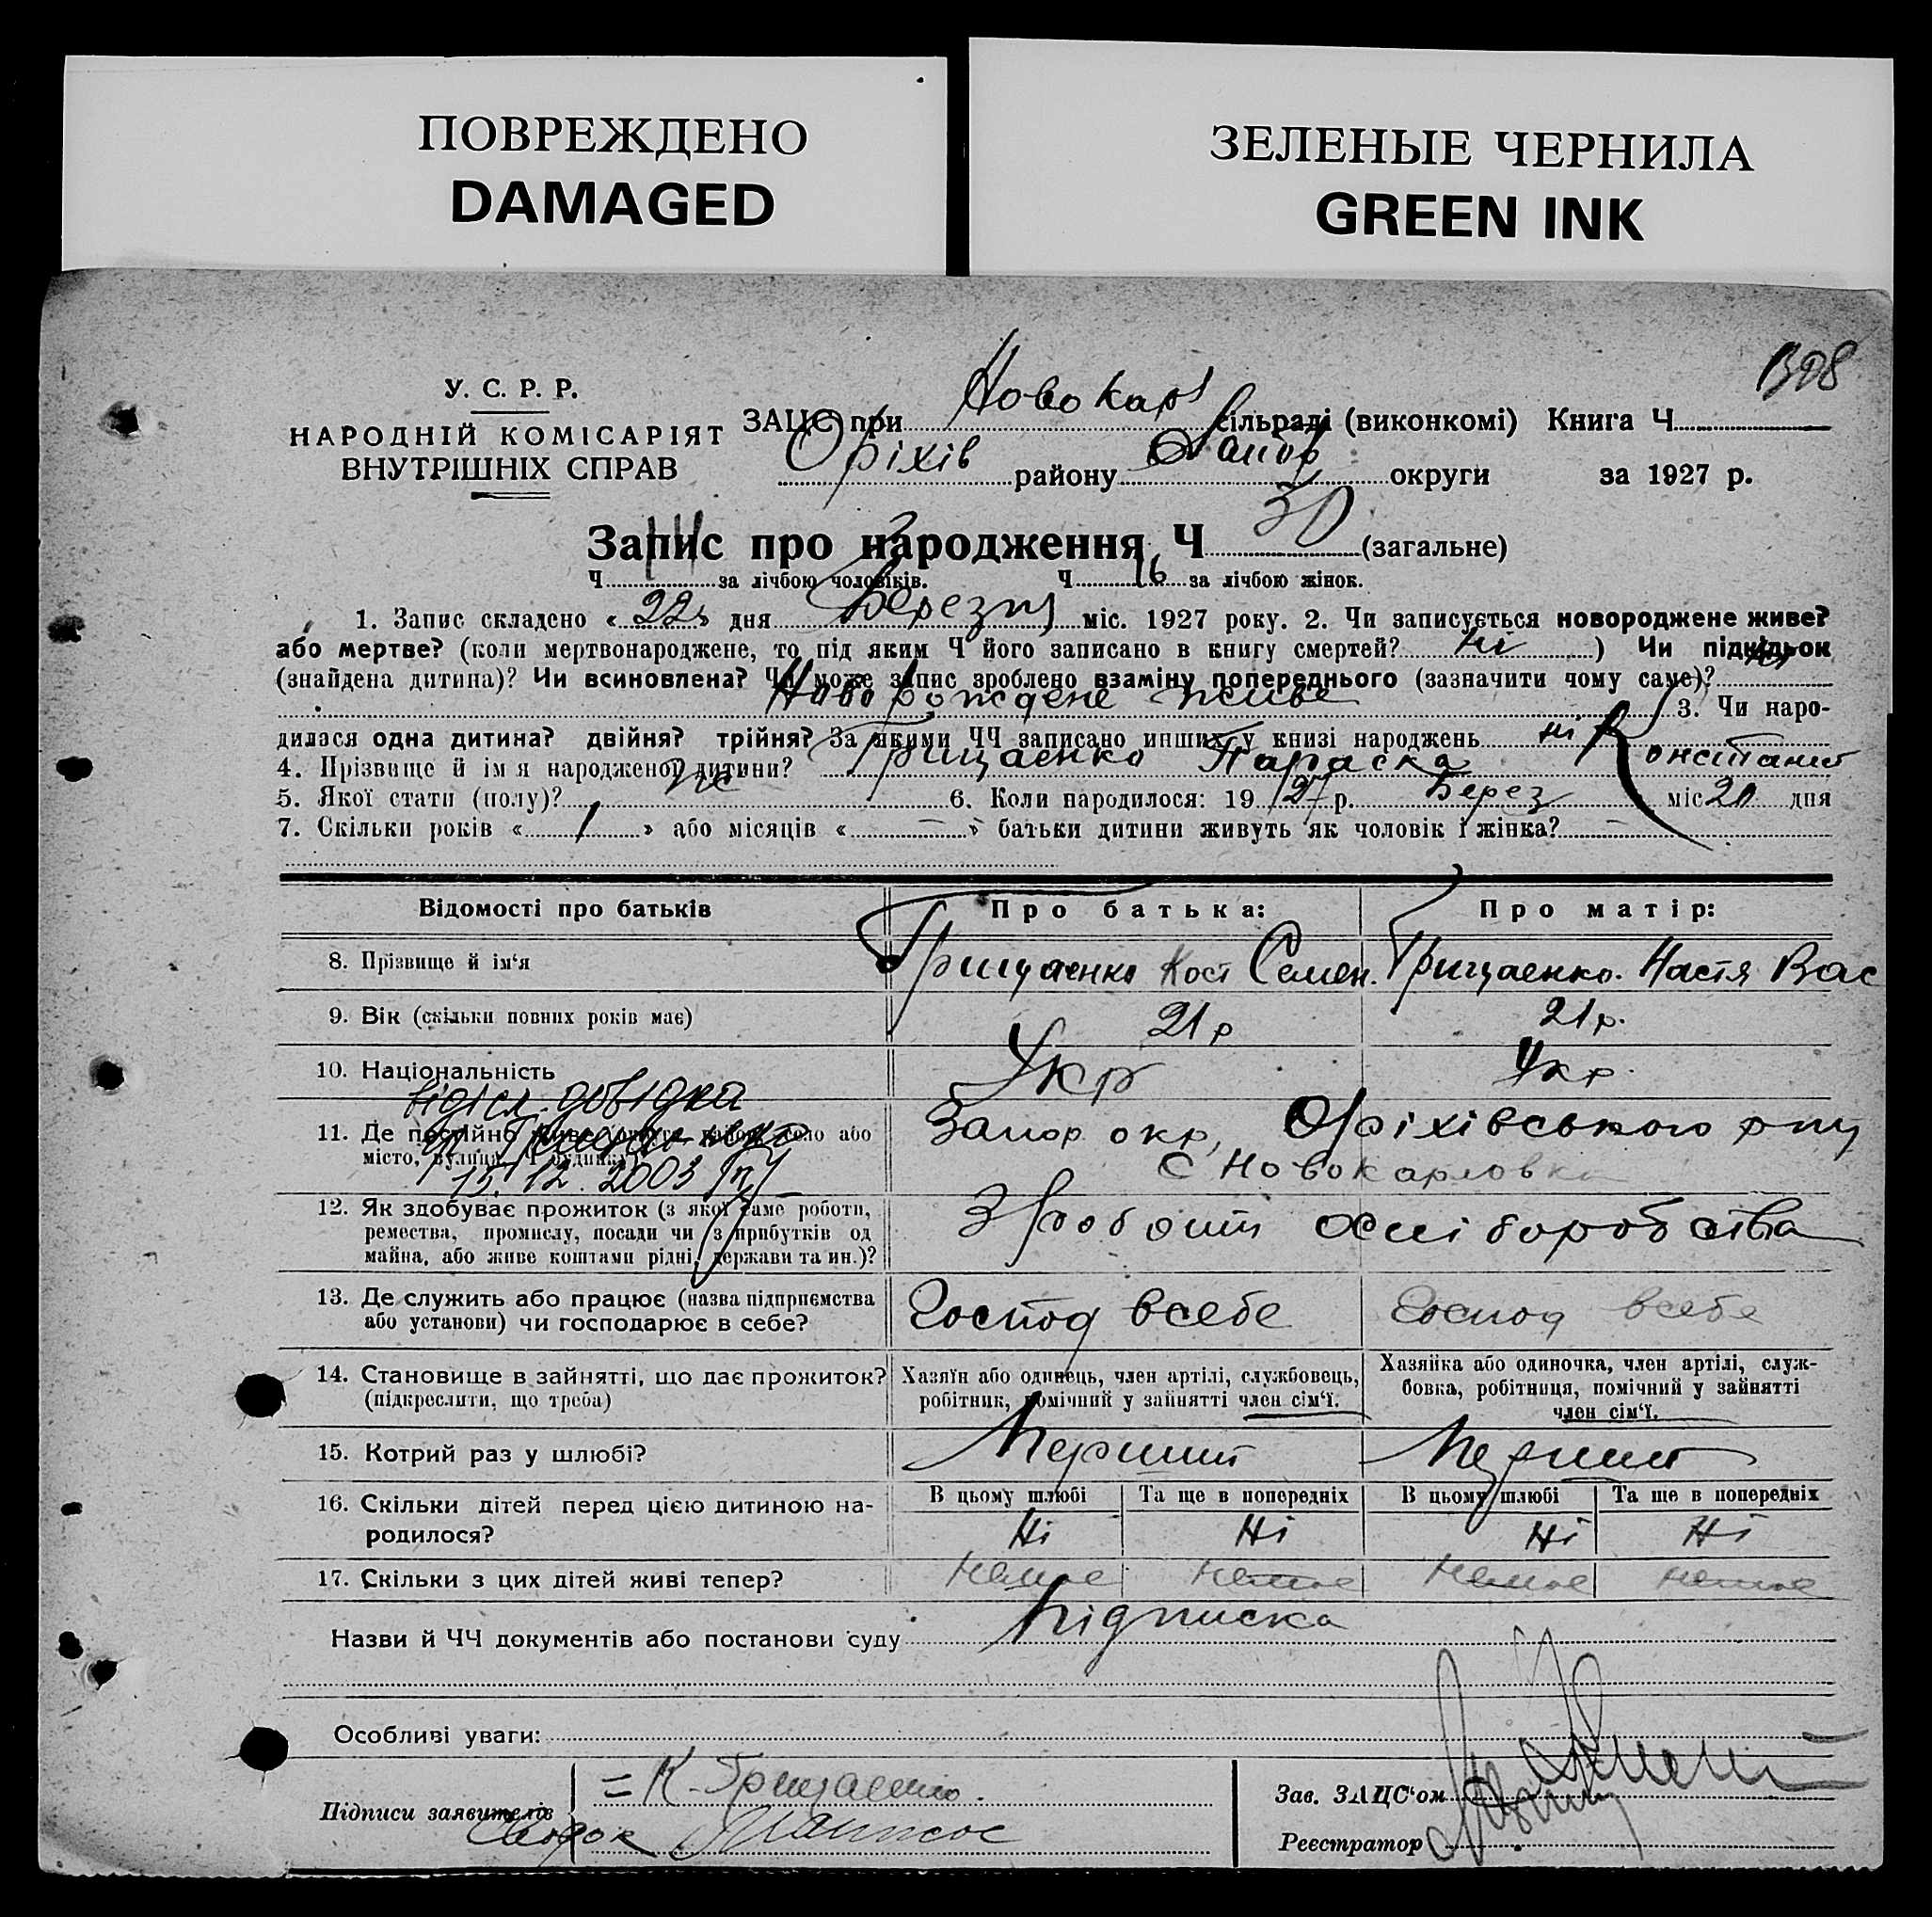 ПОВРЕЖДЕНО
DAMAGED
ЗЕЛЕНЫЕ ЧЕРНИЛА
GREEN INK
У. С. Р. Р.
НАРОДНІЙ КОМІСАРІЯТ
ВНУТРІШНІХ СПРАВ
ЗАЦС при Новокарл сільраді (виконкомі) Книга Ч
Оріхів району Запор округи за 1927 р.
Запис про народження Ч 30 (загальне)
Ч 14 за лічбою чоловіків. Ч 16 за лічбою жінок.
1. Запис складено «22» дня Березня міс. 1927 року. 2. Чи записується новороджене живе?
або мертве? (коли мертвонароджене, то під яким Ч його записано в книгу смертей? ні ) Чи підкідьок
(знайдена дитина)? Чи всиновлена? Чи може запис зроблено взаміну попереднього (зазначити чому саме)? ні
Новорожденe живе 3. Чи наро-
дилася одна дитина? двійня? трійня? За якими ЧЧ записано инших у книзі народжень ні
4. Прізвище й ім я народженої дитини? Грищаенко Параска Констант
5. Якої стати (полу)? жс 6. Коли народилося: 1927 р. Берез міс 20 дня
7. Скільки років «1» або місяців «—» батьки дитини живуть як чоловік і жінка? —
Відомості про батьків Про батька: Про матір:
8. Прізвище й ім'я Грищаенко Кост Семен. Грищаенко. Настя Вас
9. Вік (скільки повних років має) 21 р 21 р.
10. Національність Укр Укр.
відісл. довідка
11. Де постійно живе (округа, район, село або Запор окр, Оріхівського р-ну
місто, вулиця і будинка)? с Новокарловка
15. 12. 2003
12. Як здобуває прожиток (з якої саме роботи, З роботи хліборобства
ремества, промислу, посади чи з прибутків од
майна, або живе коштами рідні, держави та ин.)?
13. Де служить або працює (назва підприємства Господ всебе Господ всебе
або установи) чи господарює в себе?
14. Становище в зайнятті, що дає прожиток? Хазяїн або одинець, член артілі, службовець, Хазяйка або одиночка, член артілі, служ-
(підкреслити, що треба) робітник, помічний у зайнятті член сім'ї. бовка, робітниця, помічний у зайнятті
член сім'ї.
15. Котрий раз у шлюбі? Перший Перший
16. Скільки дітей перед цією дитиною на- В цьому шлюбі Та ще в попередніх В цьому шлюбі Та ще в попередніх
родилося? Ні Ні Ні Ні
17. Скільки з цих дітей живі тепер? Немає Немає Немає Немає
Назви й ЧЧ документів або постанови суду Підписка
Особливі уваги:
Підписи заявителів К. Грищаенко. Зав. ЗАЦС'ом
Реєстратор